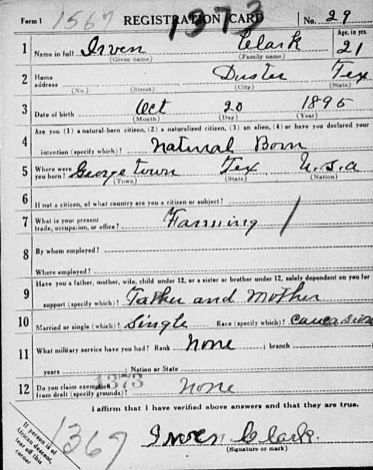 Form 1 1567 REGISTRATION CARD 1373 No. 29
1 Name in full Irven Clark Age, in yrs. 21
(Given name) (Family name)
2 Home address Duster Tex
(No.) (Street) (City) (State)
3 Date of birth Oct 20 1895
(Month) (Day) (Year)
4 Are you (1) a natural-born citizen, (2) a naturalized citizen, (3) an alien, (4) or have you declared your
intention (specify which)? Natural Born
5 Where were you born? Georgetown Tex U.S.A
(Town) (State) (Nation)
6 If not a citizen, of what country are you a citizen or subject?
7 What is your present trade, occupation, or office? Farming
8 By whom employed?
Where employed?
9 Have you a father, mother, wife, child under 12, or a sister or brother under 12, solely dependent on you for
support (specify which)? Father and Mother
10 Married or single (which)? Single Race (specify which)? Caucasian
11 What military service have you had? Rank None ; branch
years ; Nation or State
12 Do you claim exemption from draft (specify grounds)? 1373 None
I affirm that I have verified above answers and that they are true.
Irven Clark.
(Signature or mark)
If person is of African descent, tear off this corner.
1367